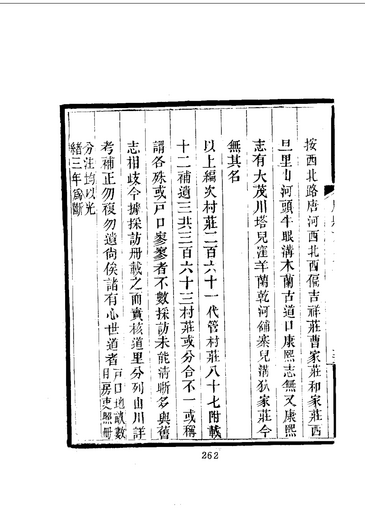 按西北路唐河西北西偏吉祥莊曹家莊和家莊西
旦里山河頭牛眼溝木蘭古道口康熙志無又康熙
志有大茂川塔兒窪羊蘭乾河舖寨兒溝狄家莊今
無其名
以上編次村莊二百六十一代管村莊八十七附載
十二補遺三共三百六十三村莊或分合不一或稱
謂各殊或戶口寥寥者不數採訪未能清晰名與舊
志相歧今據採訪冊載之而實核道里分列山川詳
考補正勿複勿遺尚俟諸有心世道者戶口地畝數目房吏照冊
分注均以光
緒三年為斷
262